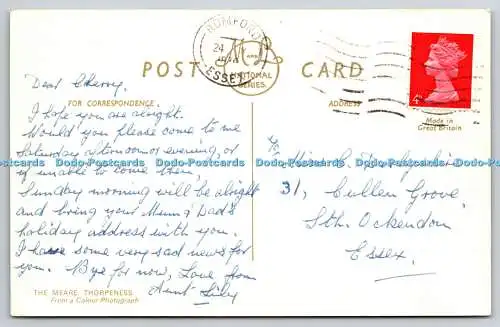 POST CARD
ROMFORD
24
ESSEX
M and L
NATIONAL
SERIES
FOR CORRESPONDENCE
ADDRESS
4D
Made in
Great Britain
Dear Cherry,
I hope you are alright.
Would you please come to me
Saturday afternoon or evening, or
if unable to come then,
Sunday morning will be alright
and bring your Mum & Dad's
holiday address with you.
I have some very sad news for
you. Bye for now, Love from
Aunt Lily
Miss C.
31, Cullen Grove,
Sth. Ockendon,
Essex.
THE MEARE, THORPENESS
From a Colour Photograph
Dodo-Postcards Dodo-Postcards Dodo-Postcards Dodo-Postcards Dodo-Postcards